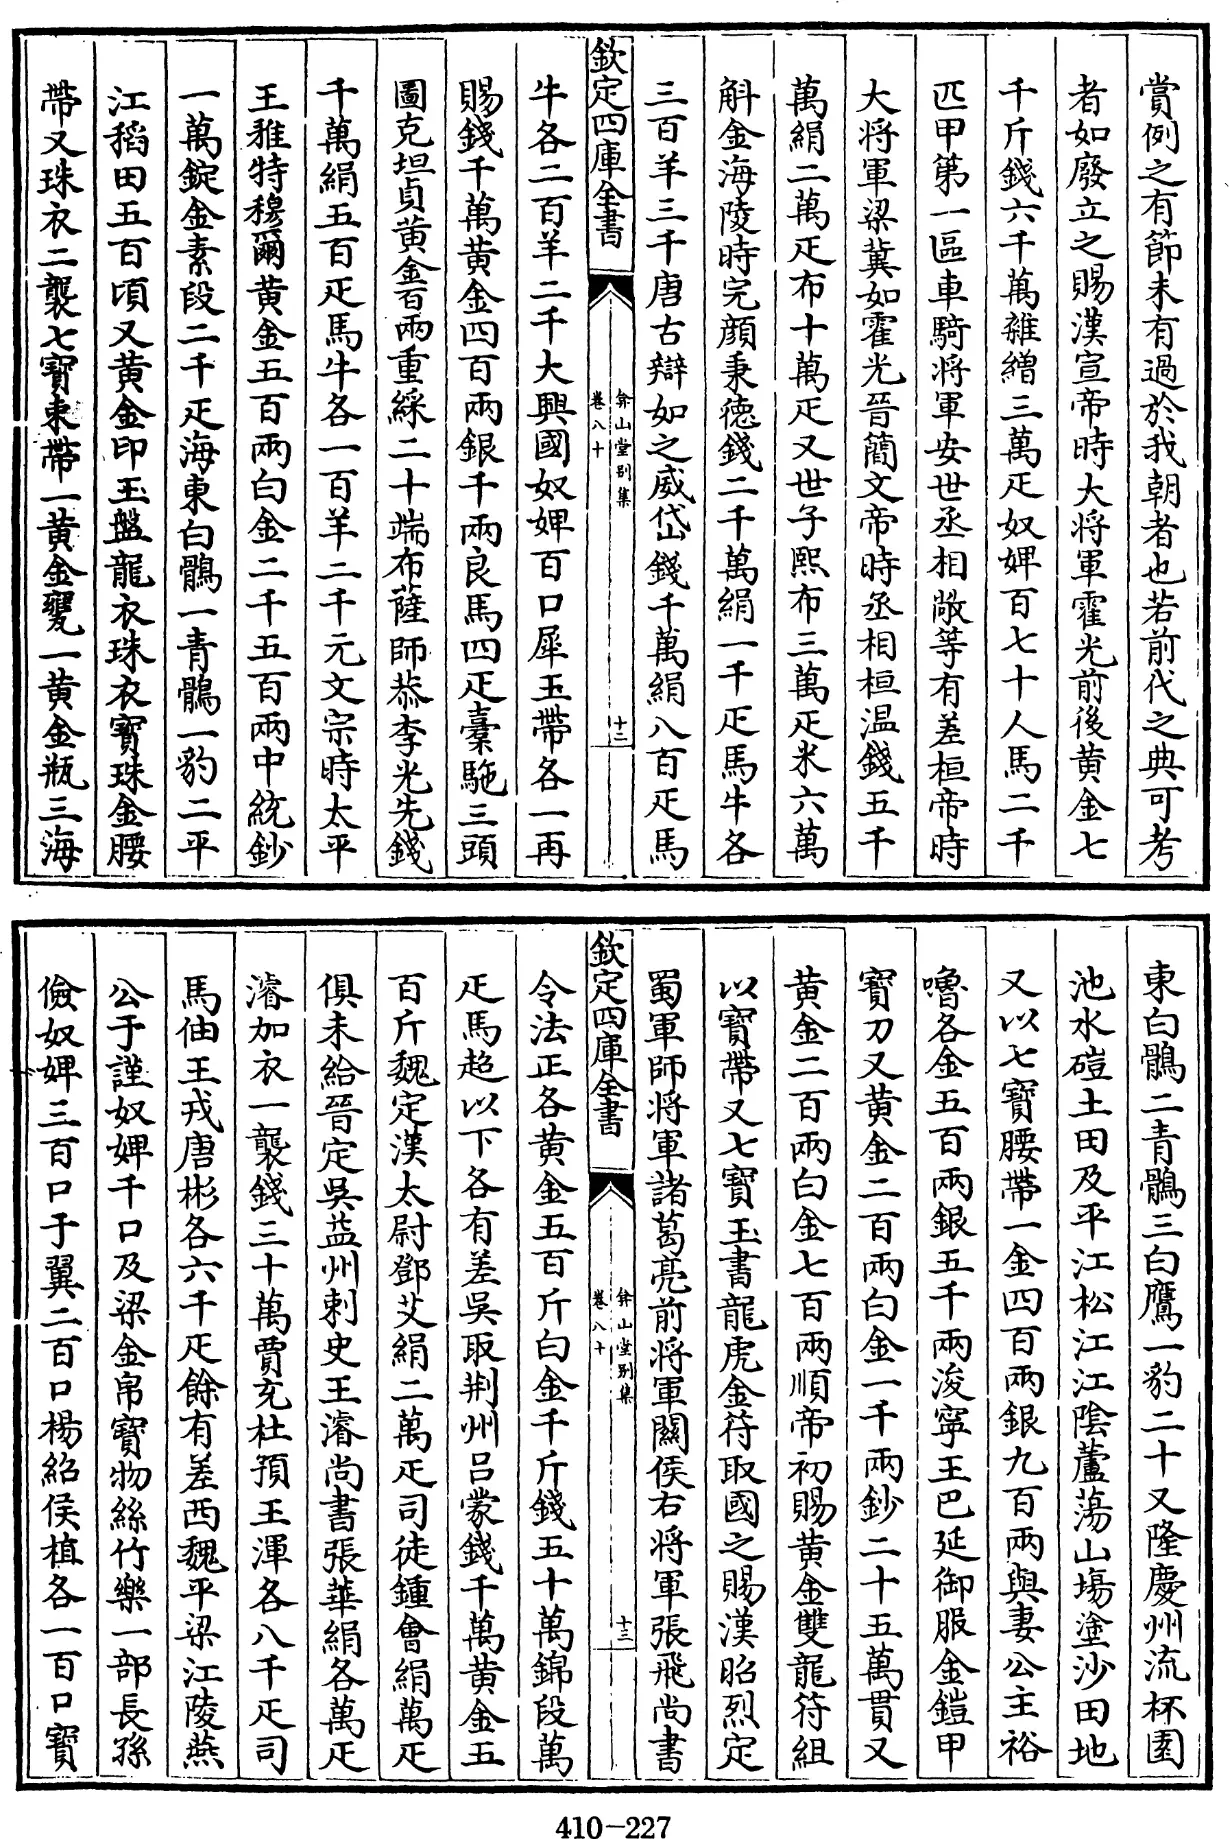 賞例之有節未有過於我朝者也若前代之典可考
者如廢立之賜漢宣帝時大將軍霍光前後黃金七
千斤錢六千萬雜繒三萬疋奴婢百七十人馬二千
匹甲第一區車騎將軍安世丞相敞等有差桓帝時
大將軍梁冀如霍光晉簡文帝時丞相桓溫錢五千
萬絹二萬疋布十萬疋又世子熙布三萬疋米六萬
斛金海陵時完顔秉德錢二千萬絹一千疋馬牛各
三百羊三千唐古辯如之威岱錢千萬絹八百疋馬
欽定四庫全書
弇山堂别集
卷八十
十二
牛各二百羊二千大興國奴婢百口犀玉帶各一再
賜錢千萬黃金四百兩銀千兩良馬四疋橐駞三頭
圖克坦貞黃金百兩重綵二十端布薩師恭李光先錢
千萬絹五百疋馬牛各一百羊二千元文宗時太平
王雅特穆爾黃金五百兩白金二千五百兩中統鈔
一萬錠金素段二千疋海東白鶻一青鶻一豹二平
江稻田五百頃又黃金印玉盤龍衣珠衣寶珠金腰
帶又珠衣二襲七寶束帶一黃金甕一黃金瓶三海
東白鶻二青鶻三白鷹一豹二十又隆慶州流杯園
池水磑土田及平江松江江陰蘆蕩山塲塗沙田地
又以七寶腰帶一金四百兩銀九百兩與妻公主裕
嚕各金五百兩銀五千兩浚寧王巴延御服金鎧甲
寶刀又黃金二百兩白金一千兩鈔二十五萬貫又
黃金二百兩白金七百兩順帝初賜黃金雙龍符組
以寶帶又七寶玉書龍虎金符取國之賜漢昭烈定
蜀軍師將軍諸葛亮前將軍關侯右將軍張飛尚書
欽定四庫全書
弇山堂别集
卷八十
十三
令法正各黃金五百斤白金千斤錢五十萬錦段萬
疋馬超以下各有差吳取荆州呂蒙錢千萬黃金五
百斤魏定漢太尉鄧艾絹二萬疋司徒鍾會絹萬疋
俱未給晉定吳益州刺史王濬尚書張華絹各萬疋
濬加衣一襲錢三十萬賈充杜預王渾各八千疋司
馬伷王戎唐彬各六千疋餘有差西魏平梁江陵燕
公于謹奴婢千口及梁金帛寶物絲竹樂一部長孫
儉奴婢三百口于翼二百口楊紹侯植各一百口寶
410-227